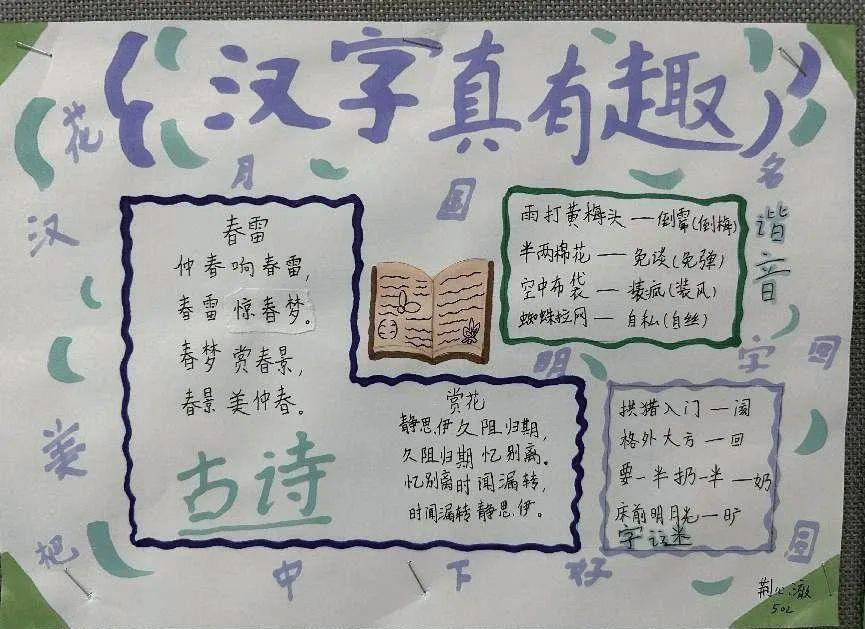 汉字真有趣
花
汉
美
把
月
国
名
明
字
回
中
下
好
图
春雷
仲春响春雷，
春雷惊春梦。
春梦赏春景，
春景美仲春。
古诗
赏花
静思伊久阻归期，
久阻归期忆别离。
忆别离时闻漏转，
时闻漏转静思伊。
谐音
雨打黄梅头——倒霉(倒梅)
半两棉花——免谈(免弹)
空中布袋——装疯(装风)
蜘蛛拉网——自私(自丝)
拱猪入门—阂
格外大方—回
要一半扔一半—奶
床前明月光—旷
字谜
502